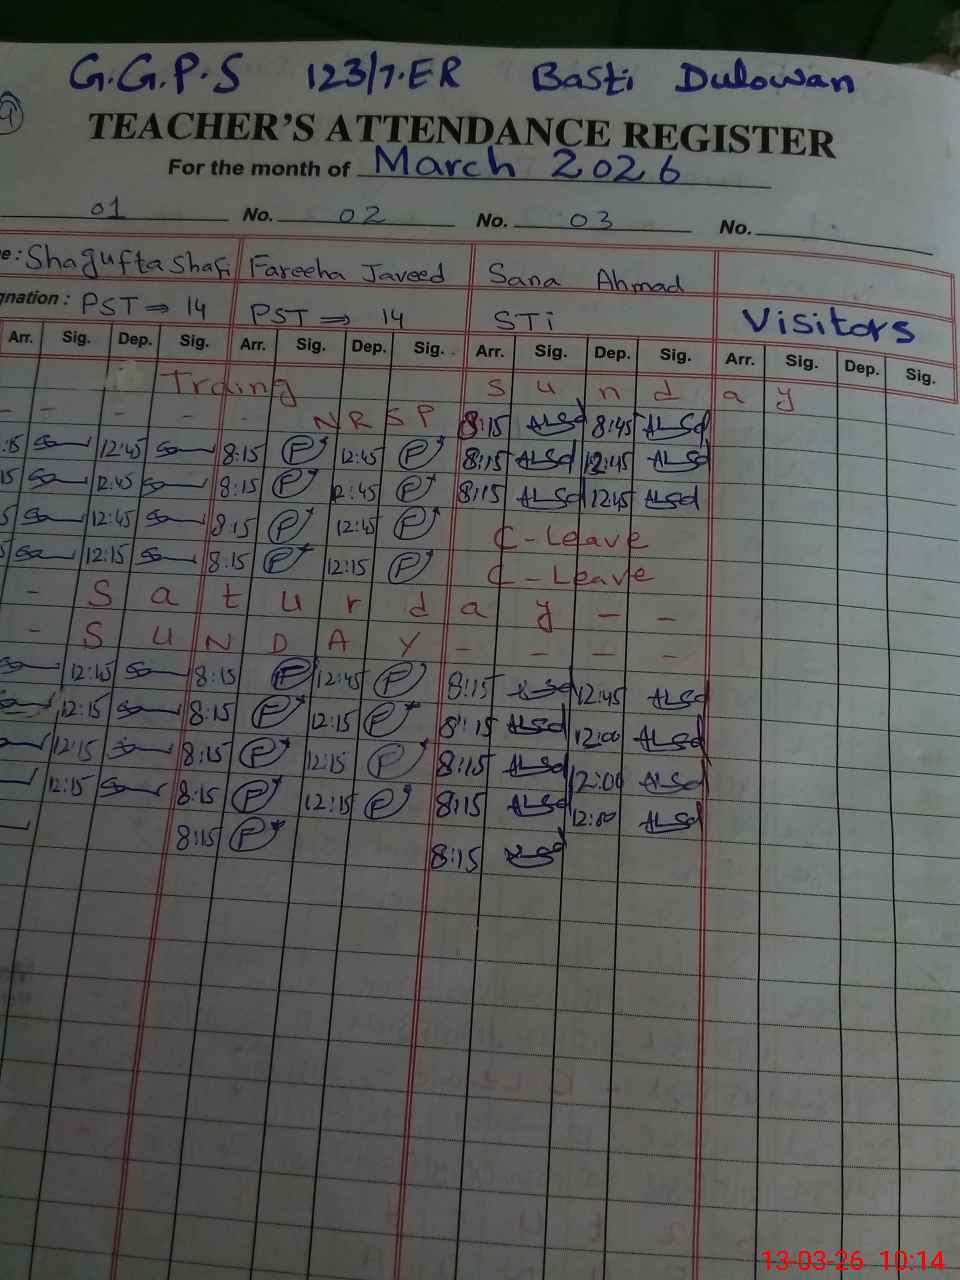 G.G.P.S 123/7.ER Basti Dulowan
TEACHER'S ATTENDANCE REGISTER
For the month of March 2026
01 No. 02 No. 03 No.
e: Shagufta Shafi Fareeha Javeed Sana Ahmad
gnation: PST ⇒ 14 PST ⇒ 14 STi Visitors
Arr. Sig. Dep. Sig. Arr. Sig. Dep. Sig. Arr. Sig. Dep. Sig. Arr. Sig. Dep. Sig.
Traing S u n d a y
- - - - - NRSP 8:15 8:45
:15 12:45 8:15 P 12:45 P 8:15 12:45
15 12:45 8:15 P 12:45 P 8:15 12:45
5 12:45 8:15 P 12:45 P C-Leave
5 12:15 8:15 P 12:15 P C-Leave
- S a t u r d a y - -
- S U N D A Y - - - -
12:45 8:15 P 12:45 P 8:15 12:45
12:15 8:15 P 12:15 P 8:15 12:00
12:15 8:15 P 12:15 P 8:15 12:00
12:15 8:15 P 12:15 P 8:15 12:00
8:15 P 8:15
13-03-26 10:14